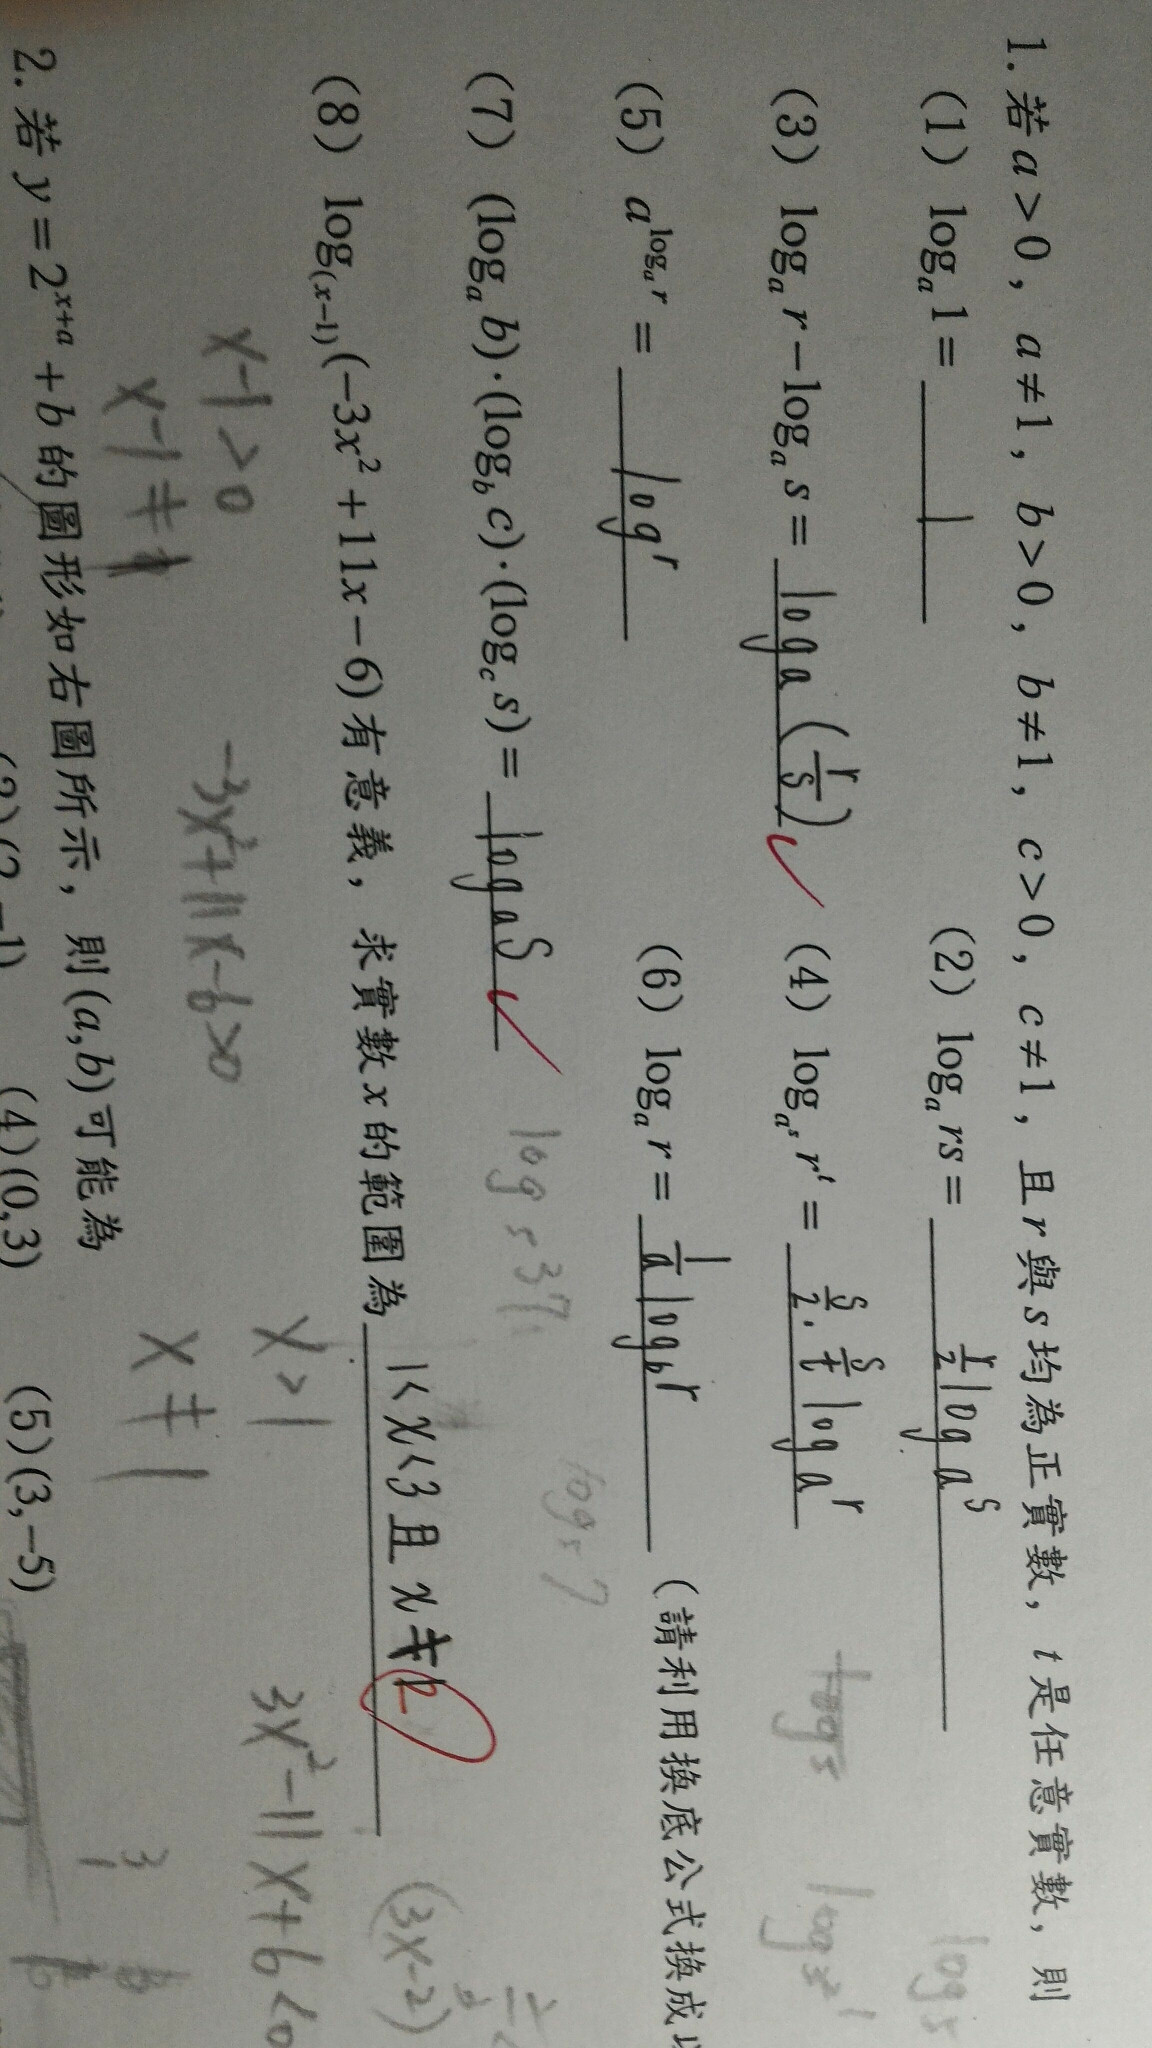 1. 若 a>0，a≠1，b>0，b≠1，c>0，c≠1，且 r 與 s 均為正實數，t 是任意實數，則
(1) logₐ1= 1 (2) logₐrs= r/2 log aˢ
(3) logₐr−logₐs= log a (r/s) (4) log_{aˢ} rᵗ = s/2 · s/t log aʳ
(5) a^{logₐr} = logʳ (6) logₐr= 1/a log bʳ (請利用換底公式換成以
(7) (logₐb)·(log_b c)·(log_c s)= log aˢ
log s 37
log s 7
log s
(8) log_{(x−1)}(−3x²+11x−6)有意義，求實數 x 的範圍為 1<x<3 且 x≠2
(3x-2)
x-1>0 -3x²+11x-6>0 x>1 3x²-11x+6<0
x-1≠1 x≠1
2. 若 y=2^{x+a}+b 的圖形如右圖所示，則(a,b)可能為
(4)(0,3) (5)(3,−5)